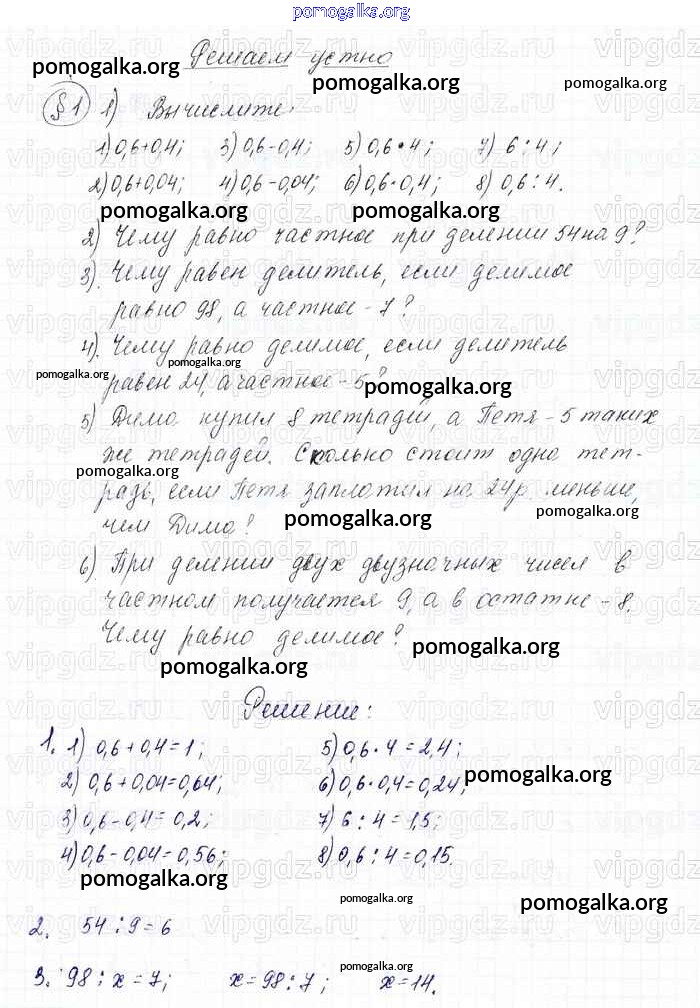 pomogalka.org
Решаем устно
§1 1) Вычислите:
1) 0,6+0,4; 3) 0,6-0,4; 5) 0,6•4; 7) 6:4;
2) 0,6+0,04; 4) 0,6-0,04; 6) 0,6·0,4; 8) 0,6:4.
2) Чему равно частное при делении 54 на 9?
3). Чему равен делитель, если делимое
равно 98, а частное - 7?
4). Чему равно делимое, если делитель
равен 24, а частное - 5?
5) Дима купил 8 тетрадей, а Петя - 5 таких
же тетрадей. Сколько стоит одна тет-
радь, если Петя заплатил на 24р. меньше,
чем Дима?
6). При делении двух двузначных чисел в
частном получается 9, а в остатке - 8.
Чему равно делимое?
Решение:
1. 1) 0,6+0,4=1; 5) 0,6·4=2,4;
2) 0,6+0,04=0,64; 6) 0,6·0,4=0,24;
3) 0,6-0,4=0,2; 7) 6:4=1,5;
4) 0,6-0,04=0,56; 8) 0,6:4=0,15.
2. 54:9=6
3. 98:x=7; x=98:7; x=14.